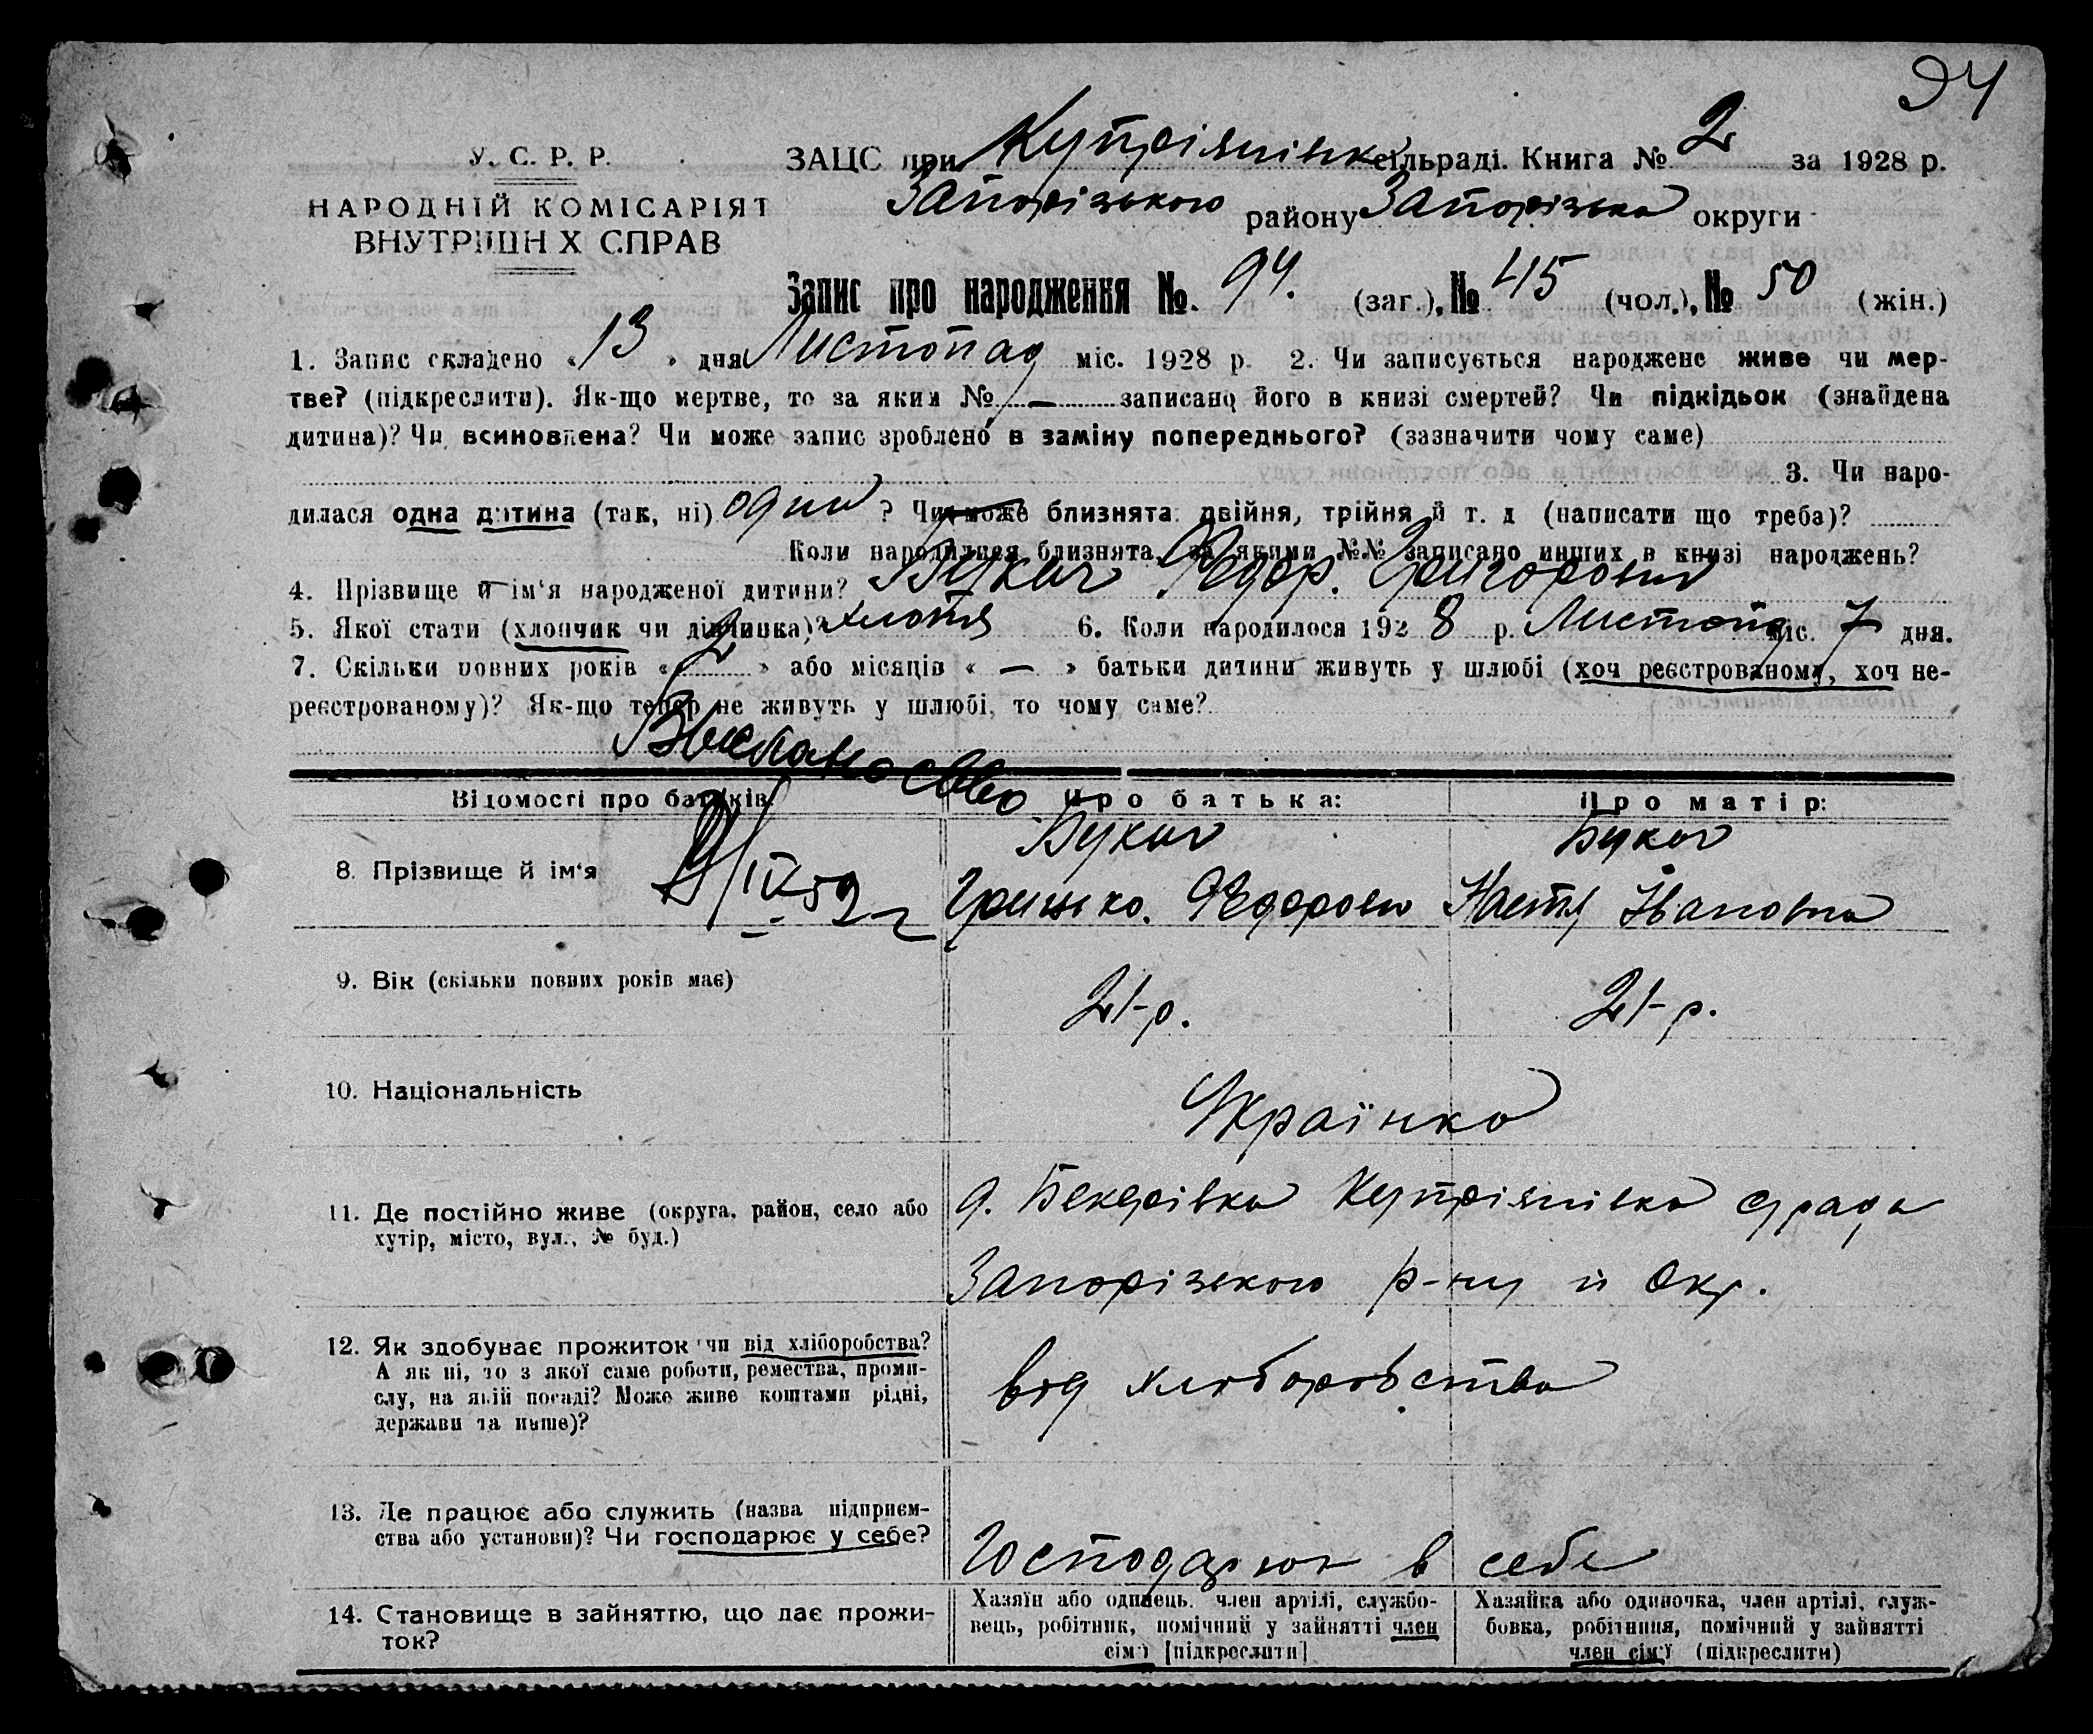 94
У. С. Р. Р.
НАРОДНІЙ КОМІСАРІЯТ
ВНУТРІШН Х СПРАВ
ЗАЦС при Купріянівк сільраді. Книга № 2 за 1928 р.
Запорізького району Запорізька округи
Запис про народження №. 94. (заг.), № 45 (чол.), № 50 (жін.)
1. Запис складено « 13 » дня Листопад міс. 1928 р. 2. Чи записується народжене живе чи мер-
тве? (підкреслити). Як-що мертве, то за яким № — записано його в книзі смертей? Чи підкідьок (знайдена
дитина)? Чи всиновлена? Чи може запис зроблено в заміну попереднього? (зазначити чому саме)
3. Чи наро-
дилася одна дитина (так, ні) одна ? Чи може близнята: двійня, трійня й т. д (написати що треба)?
Коли народилися близнята, за якими №№ записано инших в книзі народжень?
4. Прізвище й ім'я народженої дитини? Букач Федор. Григорович
5. Якої стати (хлопчик чи дівчинка)? хлопя 6. Коли народилося 192 8 р. Листопад міс. 7 дня.
7. Скільки повних років « 2 » або місяців « — » батьки дитини живуть у шлюбі (хоч реєстрованому, хоч не-
реєстрованому)? Як-що тепер не живуть у шлюбі, то чому саме?
Відомості про батьків. Про батька: Про матір:
8. Прізвище й ім'я
IV 52
Букач
Гришко. Федорови
Букач
Настя Івановна
9. Вік (скільки повних років має) 21-р. 21-р.
10. Національність Українка
11. Де постійно живе (округа, район, село або
хутір, місто, вул., № буд.)
Купріянівка
Запорізького р-ну й Окр.
12. Як здобуває прожиток чи від хліборобства?
А як ні, то з якої саме роботи, ремества, проми-
слу, на якій посаді? Може живе коштами рідні,
держави та инше)?
від хліборобства
13. Де працює або служить (назва підприєм-
ства або установи)? Чи господарює у себе?
Господарюют в себе
14. Становище в зайняттю, що дає прожи-
ток?
Хазяїн або одинець. член артілі, службо-
вець, робітник, помічний у зайнятті член
сім'ї [підкреслити]
Хазяйка або одиночка, член артілі, служ-
бовка, робітниця, помічний у зайнятті
член сім'ї (підкреслити)